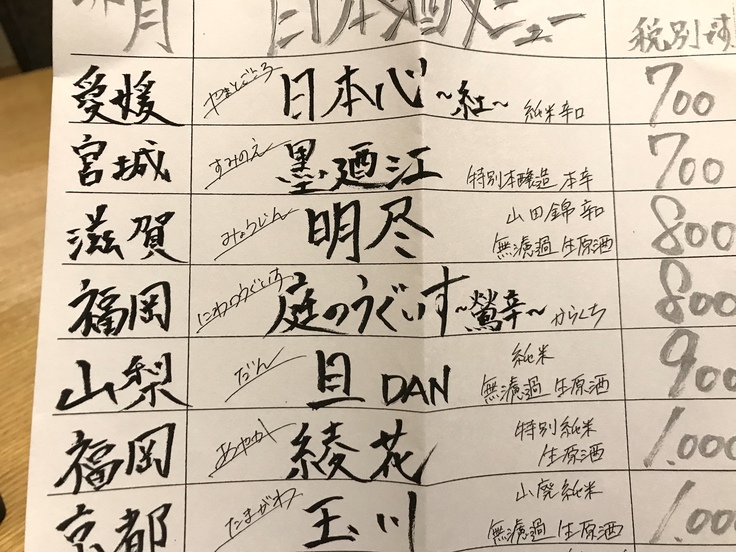 月 日本酒メニュー 税別
愛媛 やまとごころ 日本心 ~紅~ 純米辛口 700
宮城 すみのえ 墨廼江 特別本醸造 本辛 700
滋賀 みょうじん 明尽 山田錦 辛口 無濾過 生原酒 800
福岡 にわのうぐいす 庭のうぐいす ~鶯辛~ からくち 800
山梨 だん 旦 DAN 純米 無濾過 生原酒 900
福岡 あやか 綾花 特別純米 生原酒 1.000
京都 たまがわ 玉川 山廃純米 無濾過 生原酒 1.000